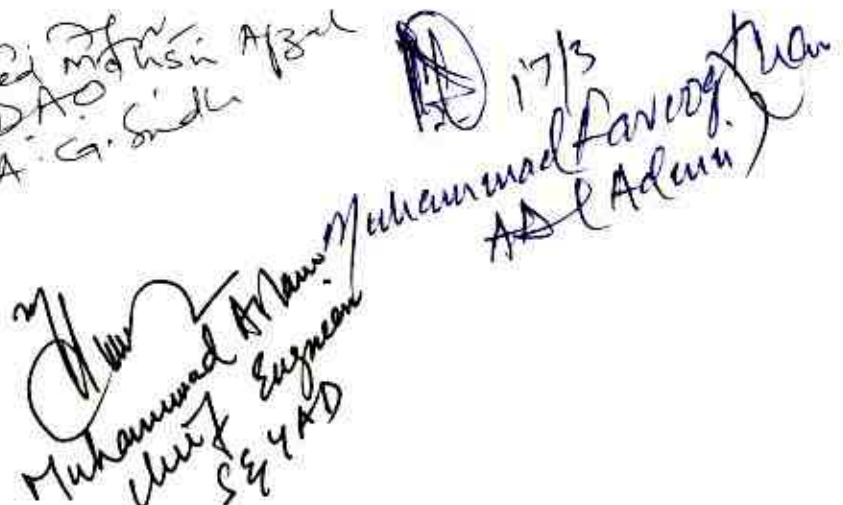 Mohsin Afzal
DAO
A.G. Sindh
17/3
Muhammad Farooq Khan
AD Admin
Muhammad Aslam
Chief Engineer
S&YAD